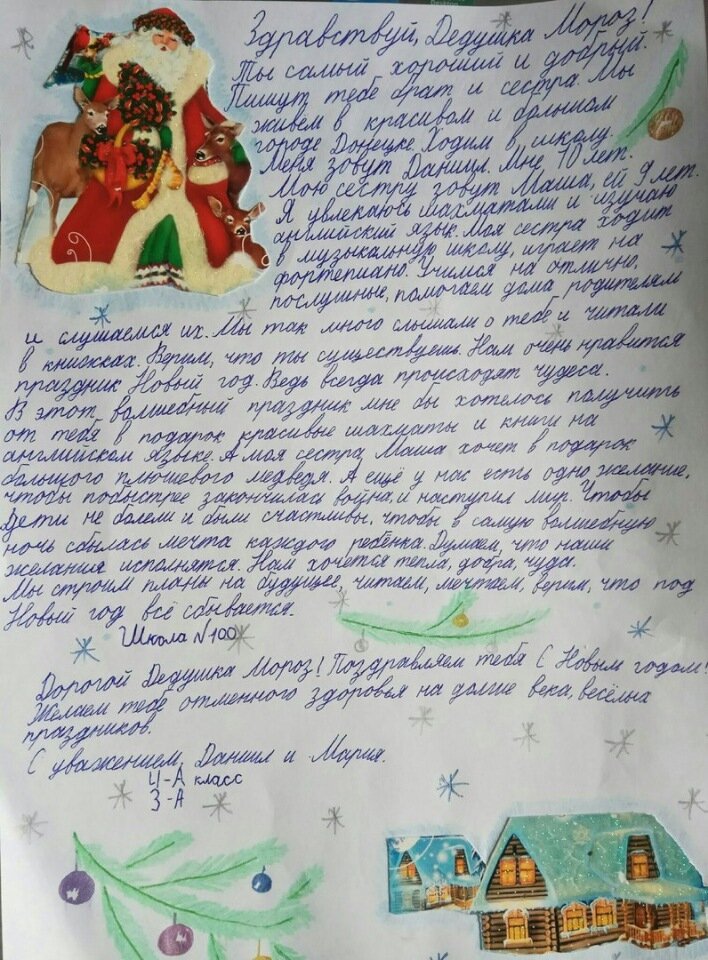 Здравствуй, Дедушка Мороз!
Ты самый хороший и добрый.
Пишут тебе брат и сестра. Мы
живём в красивом и большом
городе Донецке. Ходим в школу.
Меня зовут Даниил. Мне 10 лет.
Мою сестру зовут Маша, ей 9 лет.
Я увлекаюсь шахматами и изучаю
английский язык. Моя сестра ходит
в музыкальную школу, играет на
фортепиано. Учимся на отлично,
послушные, помогаем дома родителям
и слушаемся их. Мы так много слышали о тебе и читали
в книжках. Верим, что ты существуешь. Нам очень нравится
праздник Новый год. Ведь всегда происходят чудеса.
В этот волшебный праздник мне бы хотелось получить
от тебя в подарок красивые шахматы и книги на
английском языке. А моя сестра Маша хочет в подарок
большого плюшевого медведя. А ещё у нас есть одно желание,
чтобы побыстрее закончилась война и наступил мир. Чтобы
дети не болели и были счастливы, чтобы в самую волшебную
ночь сбылась мечта каждого ребёнка. Думаем, что наши
желания исполнятся. Нам хочется тепла, добра, чуда.
Мы строим планы на будущее, читаем, мечтаем, верим, что под
Новый год всё сбывается.
Школа №100
Дорогой Дедушка Мороз! Поздравляем тебя С Новым годом!
Желаем тебе отменного здоровья на долгие века, весёлых
праздников.
С уважением, Даниил и Мария.
4-А класс
3-А